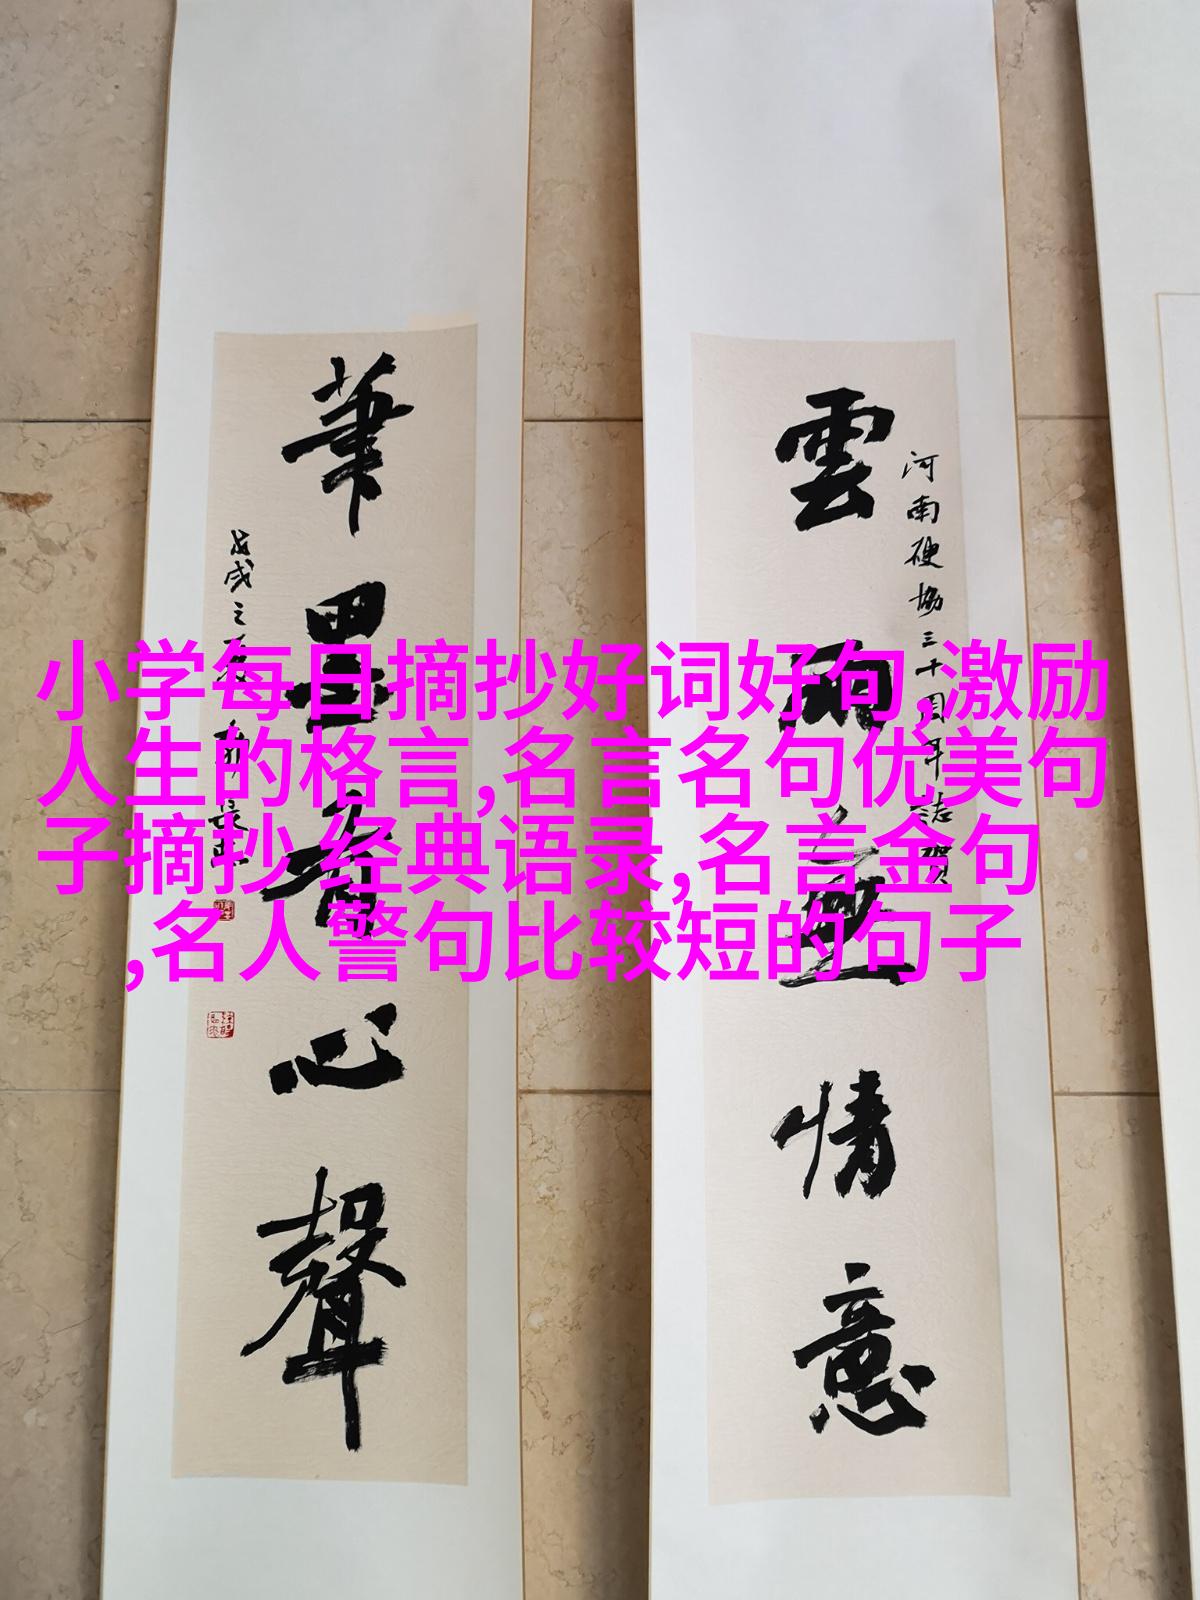 小学每日摘抄好词好句,激励
人生的格言,名言名句优美句
子摘抄,经典语录,名言金句
,名人警句比较短的句子
雲雨無情意
河南硬協三十周年誌賀
筆墨有心聲
戊戌之